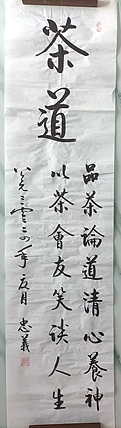 茶道
品茶論道清心養神
以茶會友笑談人生
忠義